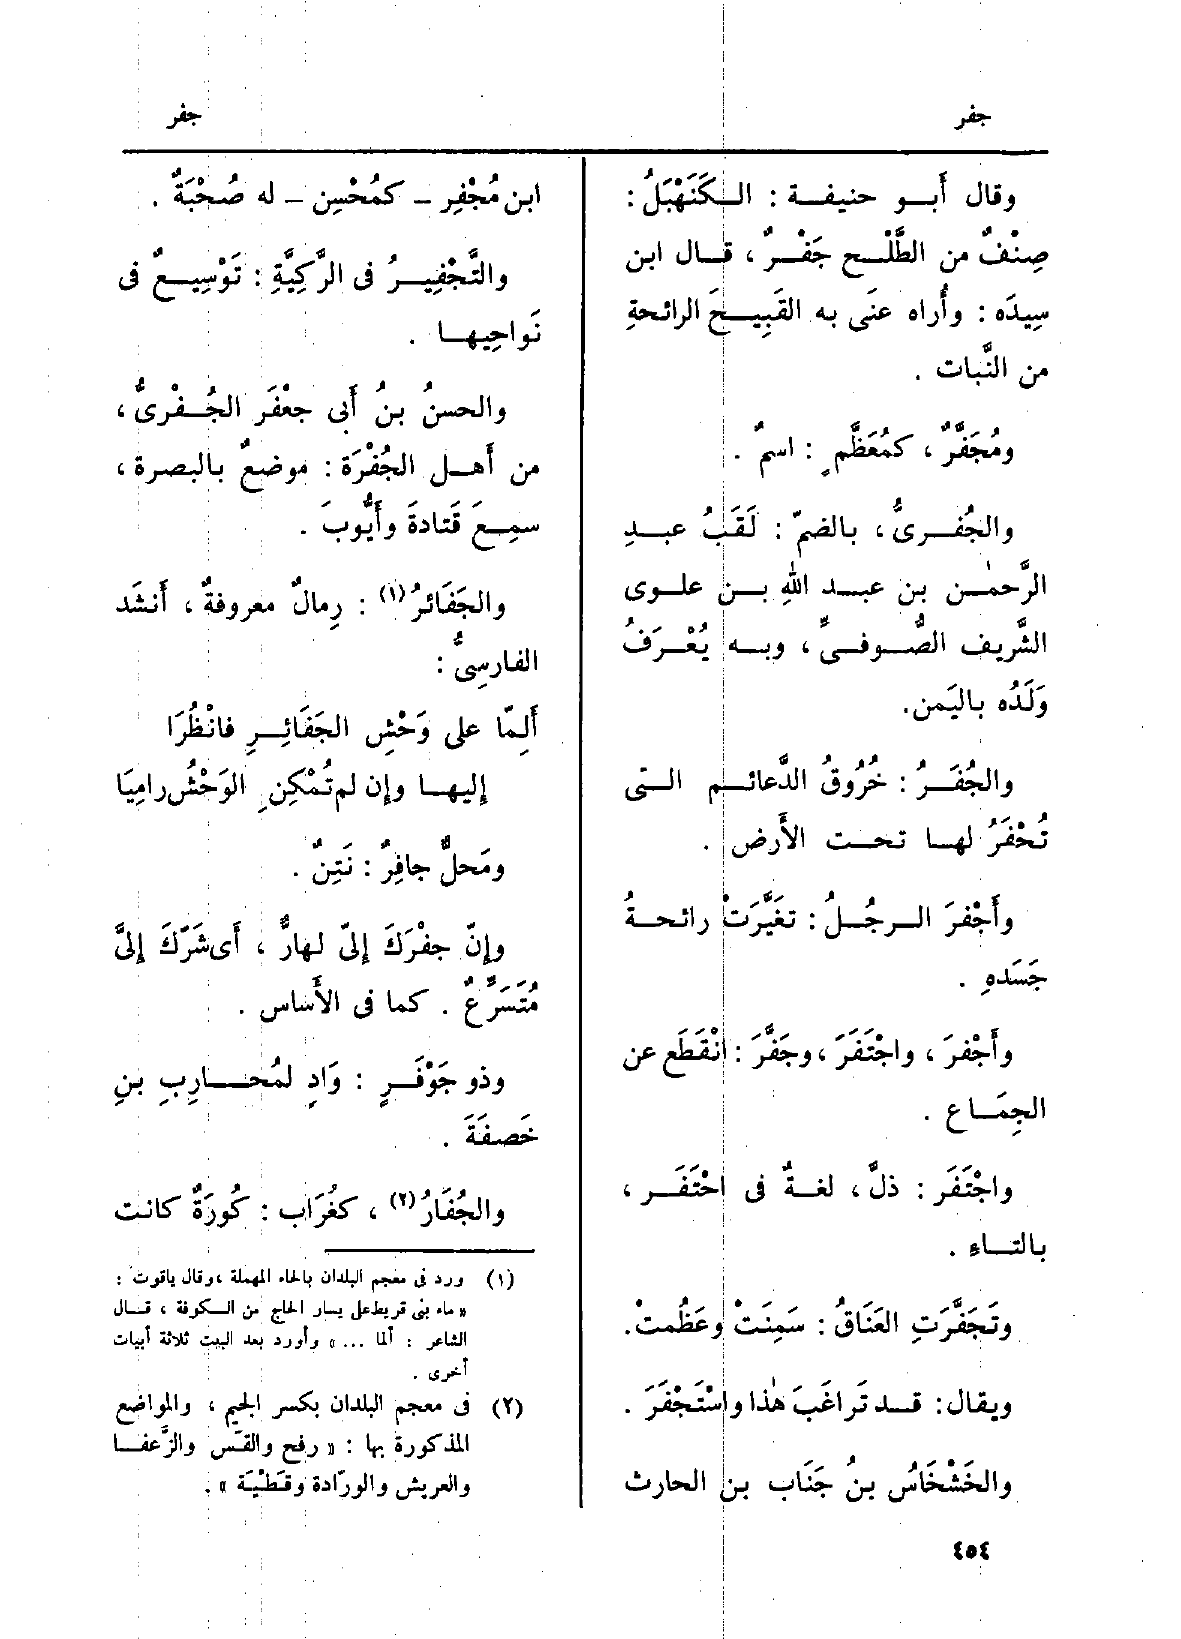 جفر
جفر
وقال أَبو حنيفة : الكَنَهْبَلُ :
صِنْفٌ من الطَّلْح جَفْرٌ ، قال ابن
سِيدَه : وأُراه عنَى به القَبِيحَ الرائحةِ
من النَّبات .
ومُجَفَّرٌ ، كمُعَظَّمٍ : اسمٌ .
والجُفْرىُّ ، بالضمّ : لَقَبُ عبدِ
الرَّحمٰن بن عبد اللهِ بن علوى
الشَّريف الصُّوفىِّ ، وبه يُعْرَفُ
وَلَدُه باليَمن.
والجُفَرُ : خُرُوقُ الدَّعائم التى
تُحْفَرُ لها تحت الأَرض .
وأَجْفرَ الرجُلُ : تغَيَّرَتْ رائحةُ
جَسَدهِ .
وأَجْفرَ ، واجْتَفَرَ ، وجَفَّرَ : انْقَطَع عن
الجِمَاع .
واجْتَفَر : ذلَّ ، لغةٌ فى احْتَفَر ،
بالتاءِ .
وتَجَفَّرَتِ العَنَاقُ : سَمِنَتْ وعَظُمت.
ويقال: قد تَراغَبَ هٰذا واسْتَجْفَرَ .
والخَشْخَاسُ بنُ جَنَاب بن الحارث
ابن مُجْفِر – كمُحْسِن – له صُحْبَةٌ .
والتَّجْفِيرُ فى الرَّكِيَّةِ : تَوْسِيعٌ فى
نَواحِيها .
والحسنُ بنُ أَبى جعْفَر الجُفْرىُّ ،
من أَهل الجُفْرَة : موضعٌ بالبصرة ،
سمِعَ قَتادةَ وأَيُّوبَ .
والجَفَائرُ(١) : رِمالٌ معروفةٌ ، أَنشَد
الفارسِىُّ :
أَلِمّا على وَحْشِ الجَفَائِرِ فانْظُرَا
إليها وإن لم تُمْكِنِ الوَحْشُ رامِيَا
ومَحلٌّ جافِرٌ : نَتِنٌ .
وإنّ جفْرَكَ إلىّ لهارٌّ ، أَى شَرّكَ إلىَّ
مُتَسَرِّعٌ . كما فى الأَساس .
وذو جَوْفَرٍ : وَادٍ لمُحارِبِ بنِ
خَصفَةَ .
والجُفَارُ(٢) ، كغُرَاب : كُورَةٌ كانت
(١) ورد فى معجم البلدان بالحاء المهملة ، وقال ياقوت :
« ماء بنى قريط على يسار الحاج من الكوفة ، قال
الشاعر : ألما ... » وأورد بعد البيت ثلاثة أبيات
أخرى .
(٢) فى معجم البلدان بكسر الجيم ، والمواضع
المذكورة بها : « رفح والقَس والزَّعفا
والعريش والورّادة وقَطْيَة » .
٤٥٤